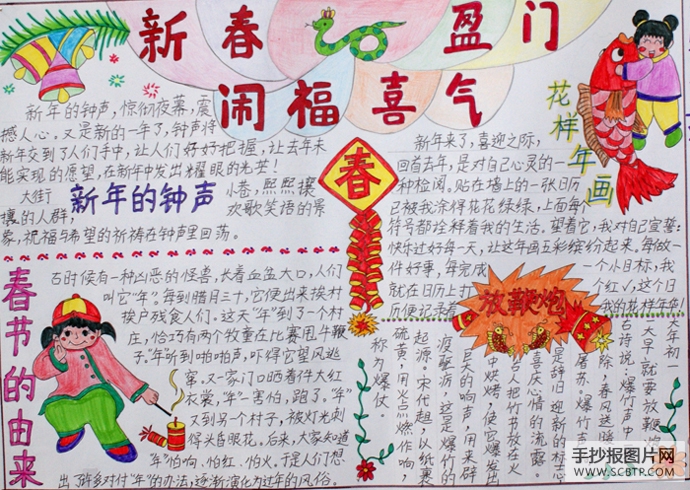 新春盈门
闹福喜气
新年的钟声，惊彻夜幕，震
撼人心，又是新的一年了，钟声将
新年交到了人们手中，让人们好好把握，让去年未
能实现的愿望，在新年中发出耀眼的光芒！
大街小巷，熙熙攘
攘的人群，欢歌笑语的景
象，祝福与希望的祈祷在钟声里回荡。
新年的钟声
春
花样年画
新年来了，喜迎之际，
回首去年，是对自己心灵的一
种检阅。贴在墙上的一张日历
已被我涂得花花绿绿，上面每个
符号都诠释着我的生活。望着它，我对自己宣誓：
快乐过好每一天，让这年画五彩缤纷起来，每做一
件好事，每完成一个小目标，我
就在日历上打个红√，这个日
历便记录着我的花样年华！
春节的由来
古时候有一种凶恶的怪兽，长着血盆大口，人们
叫它“年”。每到腊月三十，它便出来挨村
挨户残食人们。这天“年”到了一个村
庄，恰巧有两个牧童在比赛甩牛鞭
子，“年”听到啪啪声，吓得它望风逃
窜，又一家门口晒着件大红
衣裳，“年”一害怕，跑了。“年”
又到另一个村子，被灯光刺
得头昏眼花。后来，大家知道
“年”怕响、怕红、怕火。于是人们想
出了许多对付“年”的办法，逐渐演化为过年的风俗。
放鞭炮
大年初一
一大早就要放鞭炮
古诗说：爆竹声中
除，春风送暖
屠苏。爆竹声
是辞旧迎新的标志、
喜庆心情的流露。
古人把竹节放在火
中烘烤，使它爆发出
巨大的响声，用来辟
渡驱疬，这是爆竹的
起源。宋代起，以纸裹
硫黄，用火点燃作响，
称为爆仗。
手抄报图片网
WWW.SCBTP.COM